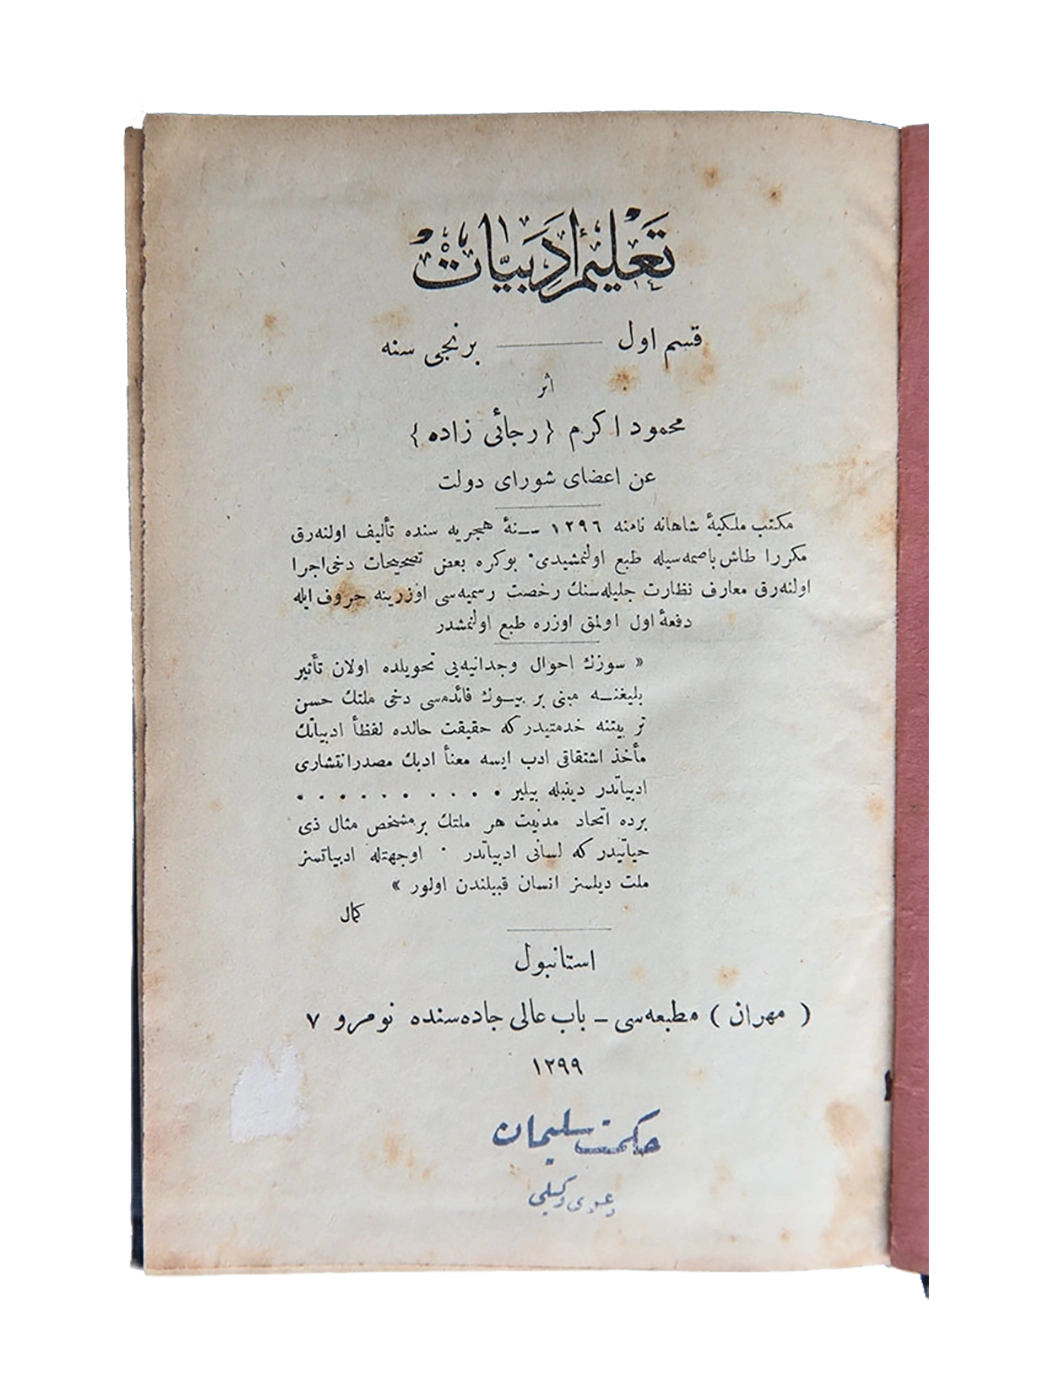 تَعْليمِ اَدَبيَّاتْ
قسم اول — برنجی سنه
اثر
محمود اكرم {رجائی زاده}
عن اعضای شورای دولت
مكتب ملكيهٔ شاهانه نامنه ١٢٩٦ سنهٔ هجريه سنده تأليف اولنه‌رق
مكررا طاش باصمه‌سيله طبع اولنمشيدی. بوكره بعض تصحيحات دخی اجرا
اولنه‌رق معارف نظارت جليله‌سنك رخصت رسميه‌سی اوزرينه حروف ايله
دفعهٔ اول اولمق اوزره طبع اولنمشدر
« سوزك احوال وجدانيه‌يی تحويلده اولان تأثير
بليغنه مبنی بر بيوك فائده‌سی دخی ملتك حسن
تربيتنه خدمتيدركه حقيقت حالده لفظاً ادبياتك
مأخذ اشتقاقی ادب ايسه معناً ادبك مصدر انتشاری
ادبياتدر دينيله بيلير . . . . . . . . . .
برده اتحاد مدنيت هر ملتك بر مشخص مثال ذی
حياتيدركه لسانی ادبياتدر . اوجهتله ادبياتسز
ملت ديلسز انسان قبيلندن اولور »
كمال
استانبول
( مهران ) مطبعه‌سی – باب عالی جاده‌سنده نومرو ٧
١٢٩٩
حكمت سليمان
دعوی وكيلی